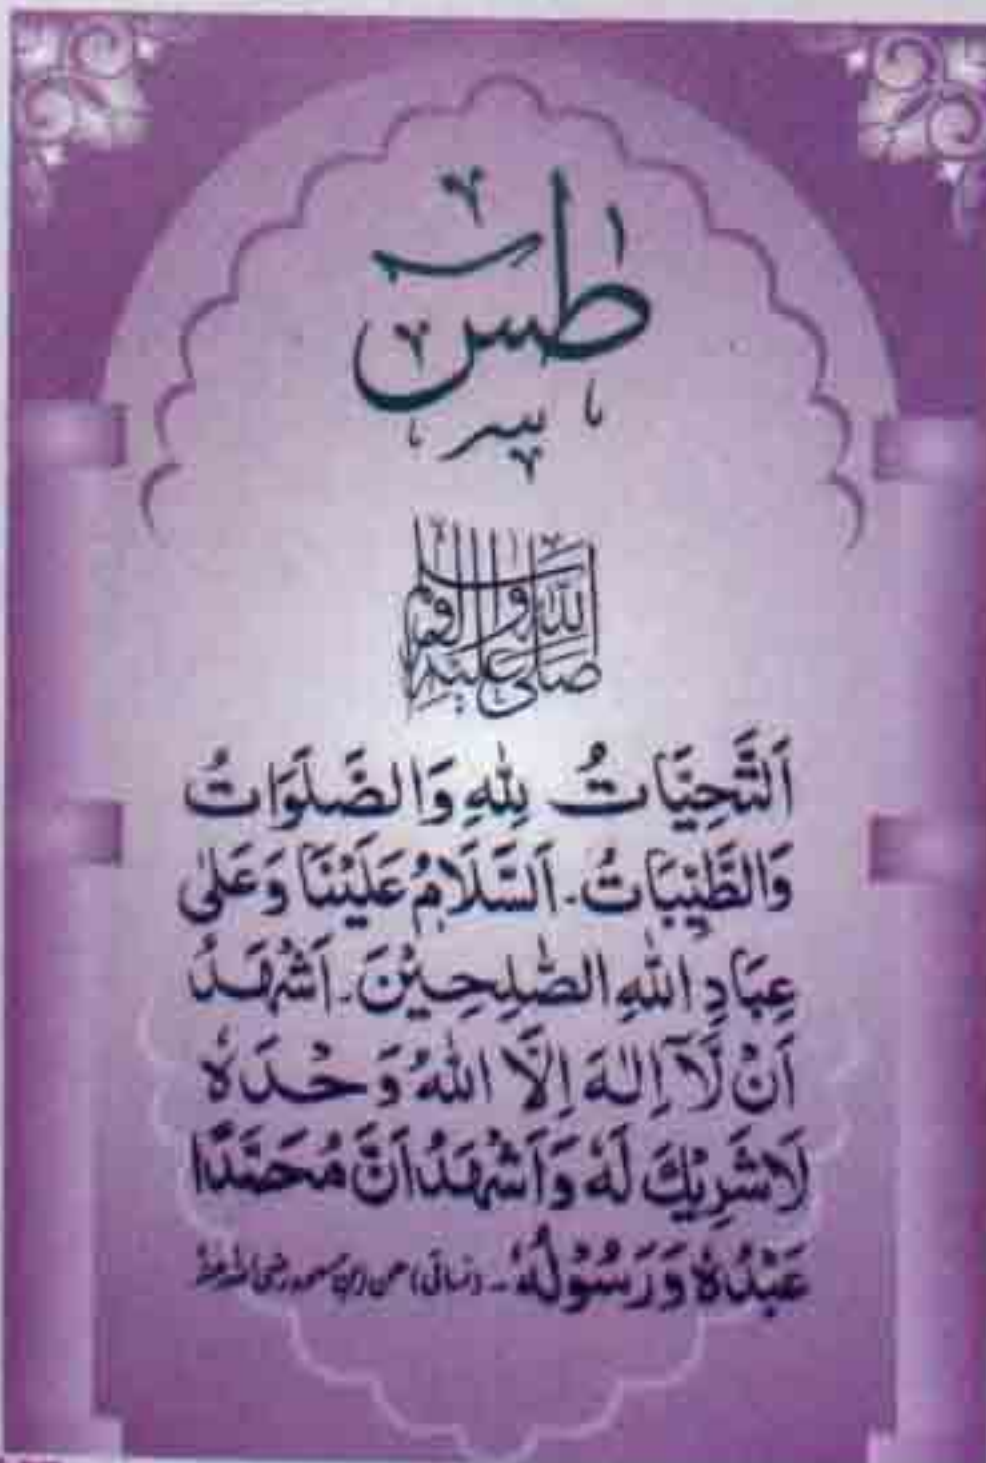 طٰسٓ
صَلَّى اللّٰهُ عَلَيْهِ وَاٰلِهٖ وَسَلَّم
اَلتَّحِيَّاتُ لِلّٰهِ وَالصَّلَوَاتُ
وَالطَّيِّبَاتُ۔ اَلسَّلَامُ عَلَيْنَا وَعَلٰى
عِبَادِ اللّٰهِ الصّٰلِحِيْنَ۔ اَشْهَدُ
اَنْ لَّآ اِلٰهَ اِلَّا اللّٰهُ وَحْدَهٗ
لَاشَرِيْكَ لَهٗ وَاَشْهَدُ اَنَّ مُحَمَّدًا
عَبْدُهٗ وَرَسُوْلُهٗ۔ (نسائی) عن ابن مسعود رضی اللہ عنہ